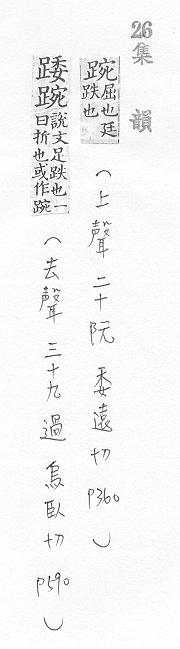 26
集韻
踠屈也廷跌也(上聲二十阮委遠切p360)
踒踠說文足跌也一曰折也或作踠(去聲三十九過烏臥切p590)